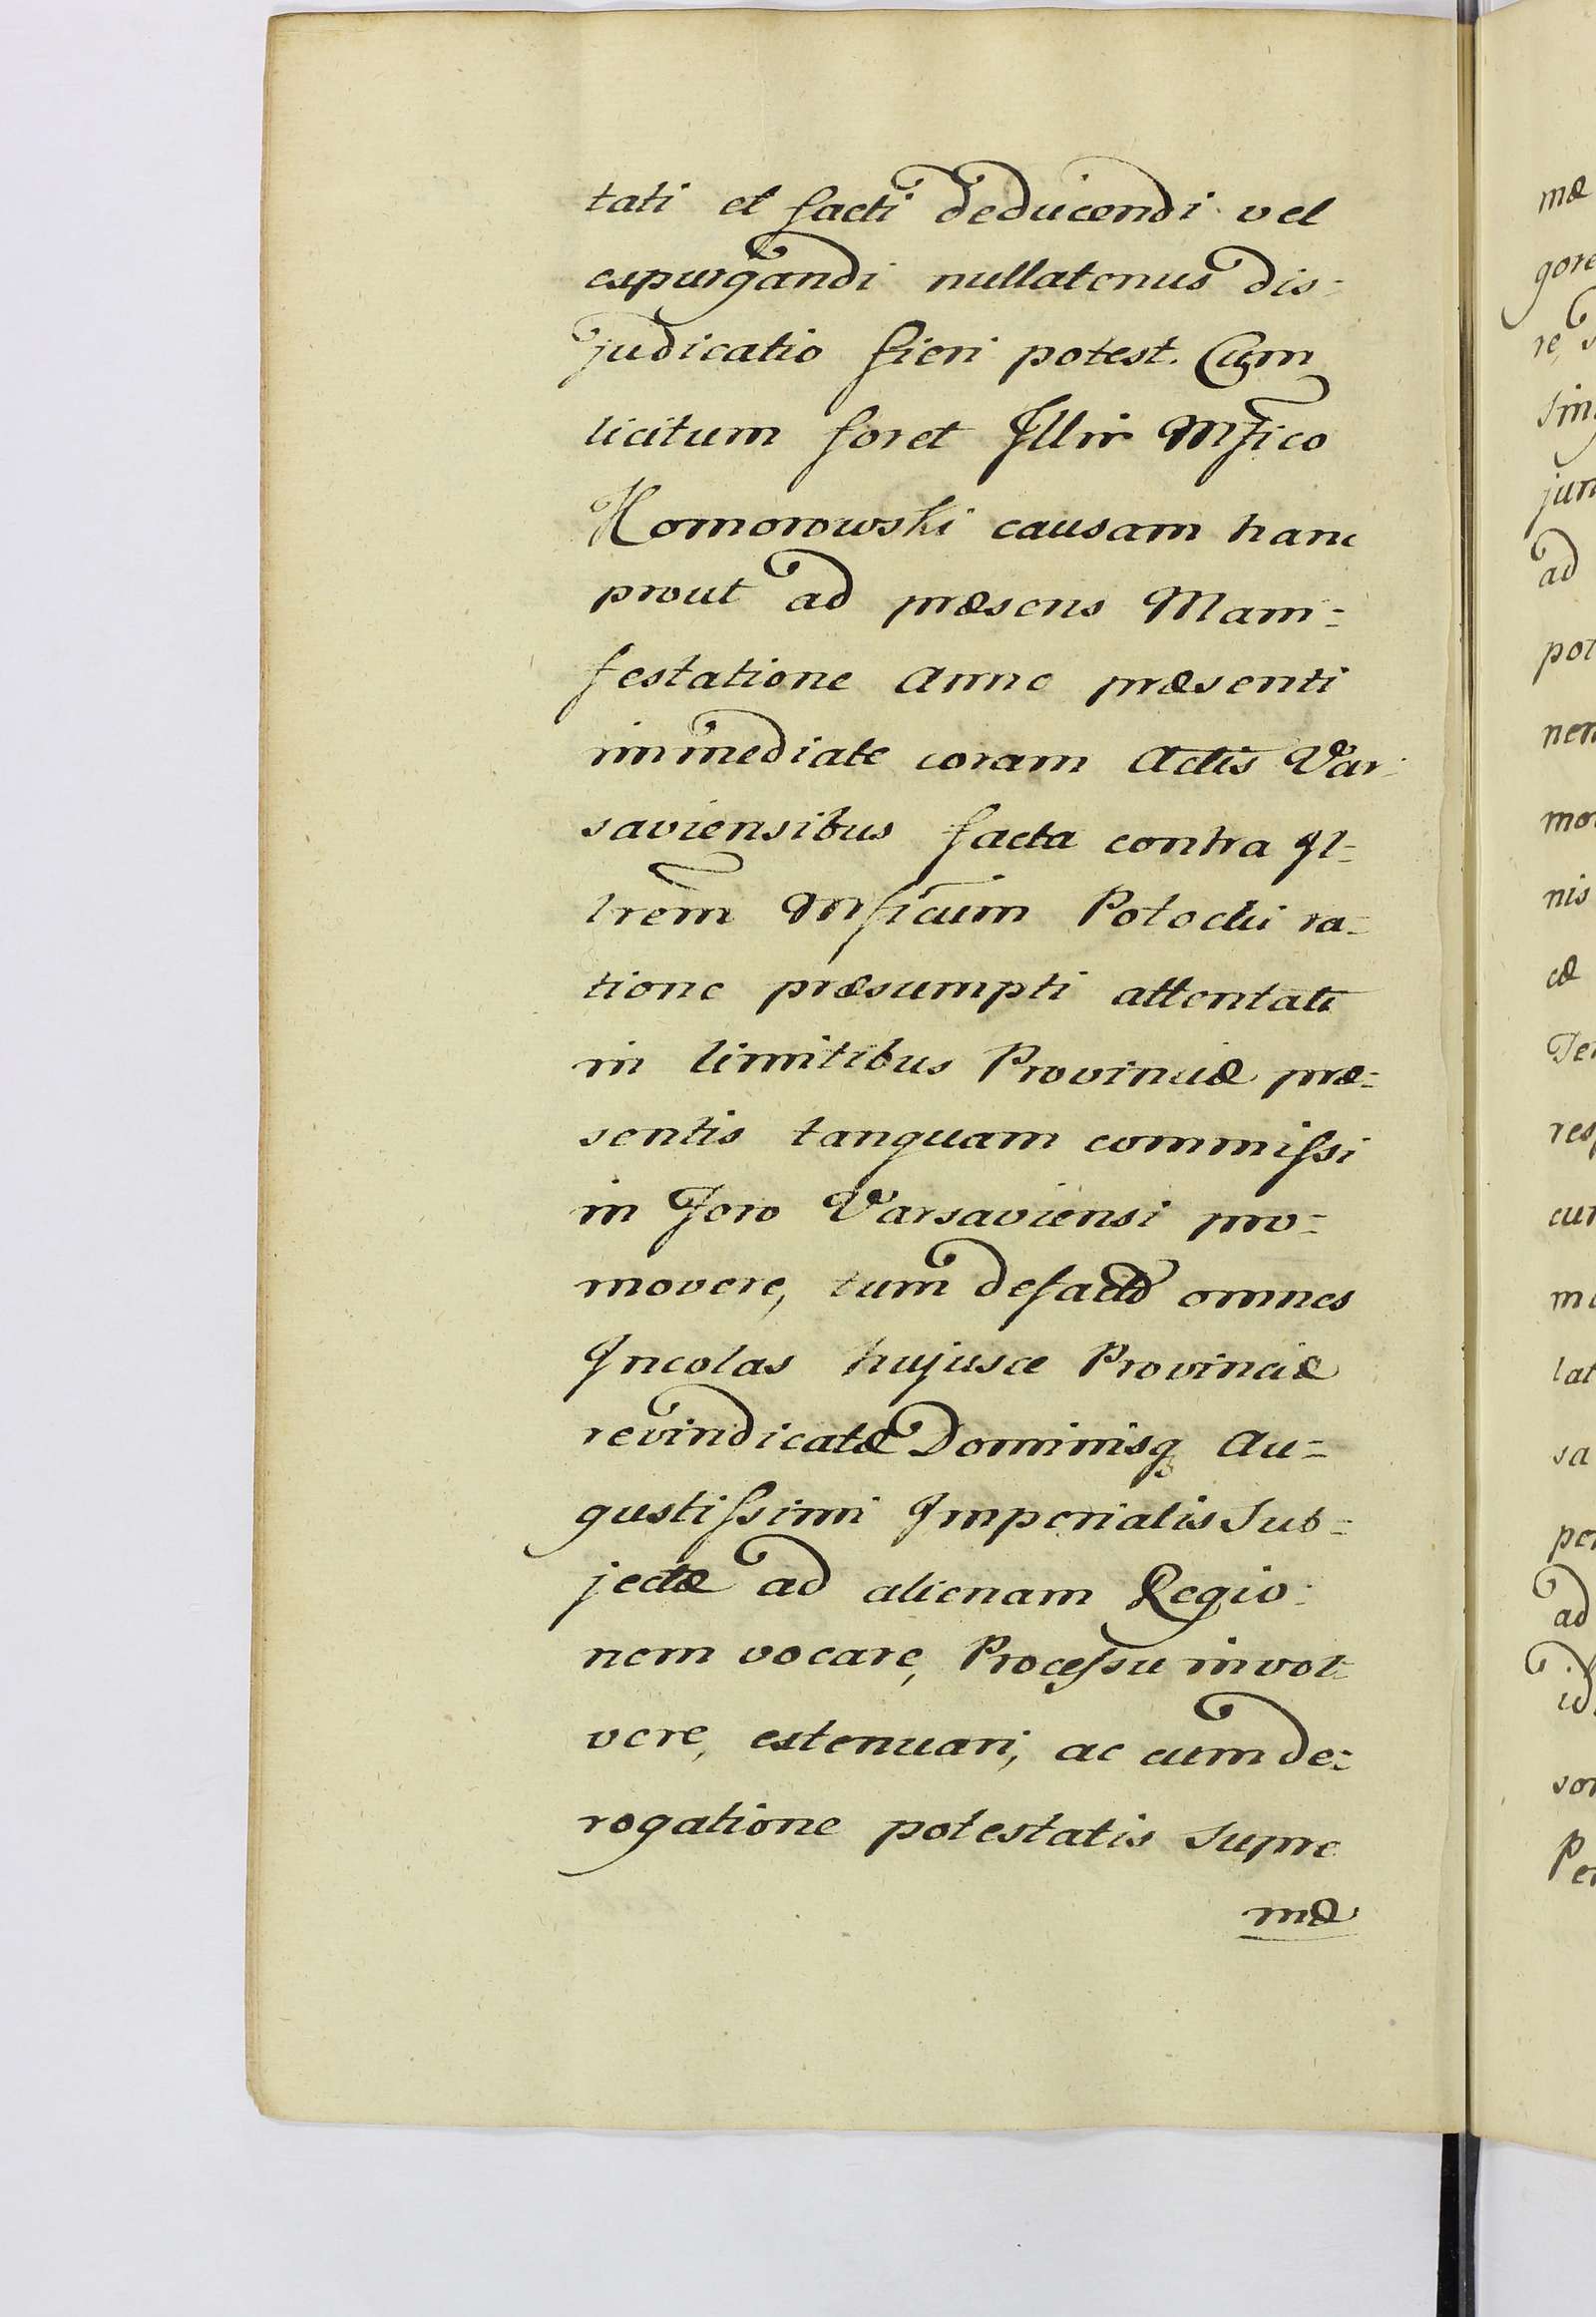 tati et facti deducendi vel
expurgandi nullatenus dis=
judicatio fieri potest. Cum
licitum foret Illri Mfico
Komorowski causam hanc
prout ad præsens Mani=
festatione Anno præsenti
immediate coram Actis Var=
saviensibus facta contra Il=
lrem Mficum Potocki ra=
tione præsumpti attentati
in limitibus Provinciæ præ=
sentis tanquam commissi
in Foro Varsaviensi pro=
movere, tum defacto omnes
Incolas hujusce Provinciæ
revindicatæ Dominisq Au=
gustissimi Imperialis Sub=
jectæ ad alienam Regio=
nem vocare, Processu invol=
vere, extenuari, ac cum de=
rogatione potestatis Supre
mæ
mæ
gore
re, s
sin
jun
ad
pot
nen
mo
nis
cæ
Te
res
cu
mi
lat
sa
per
ad
id
son
Pe